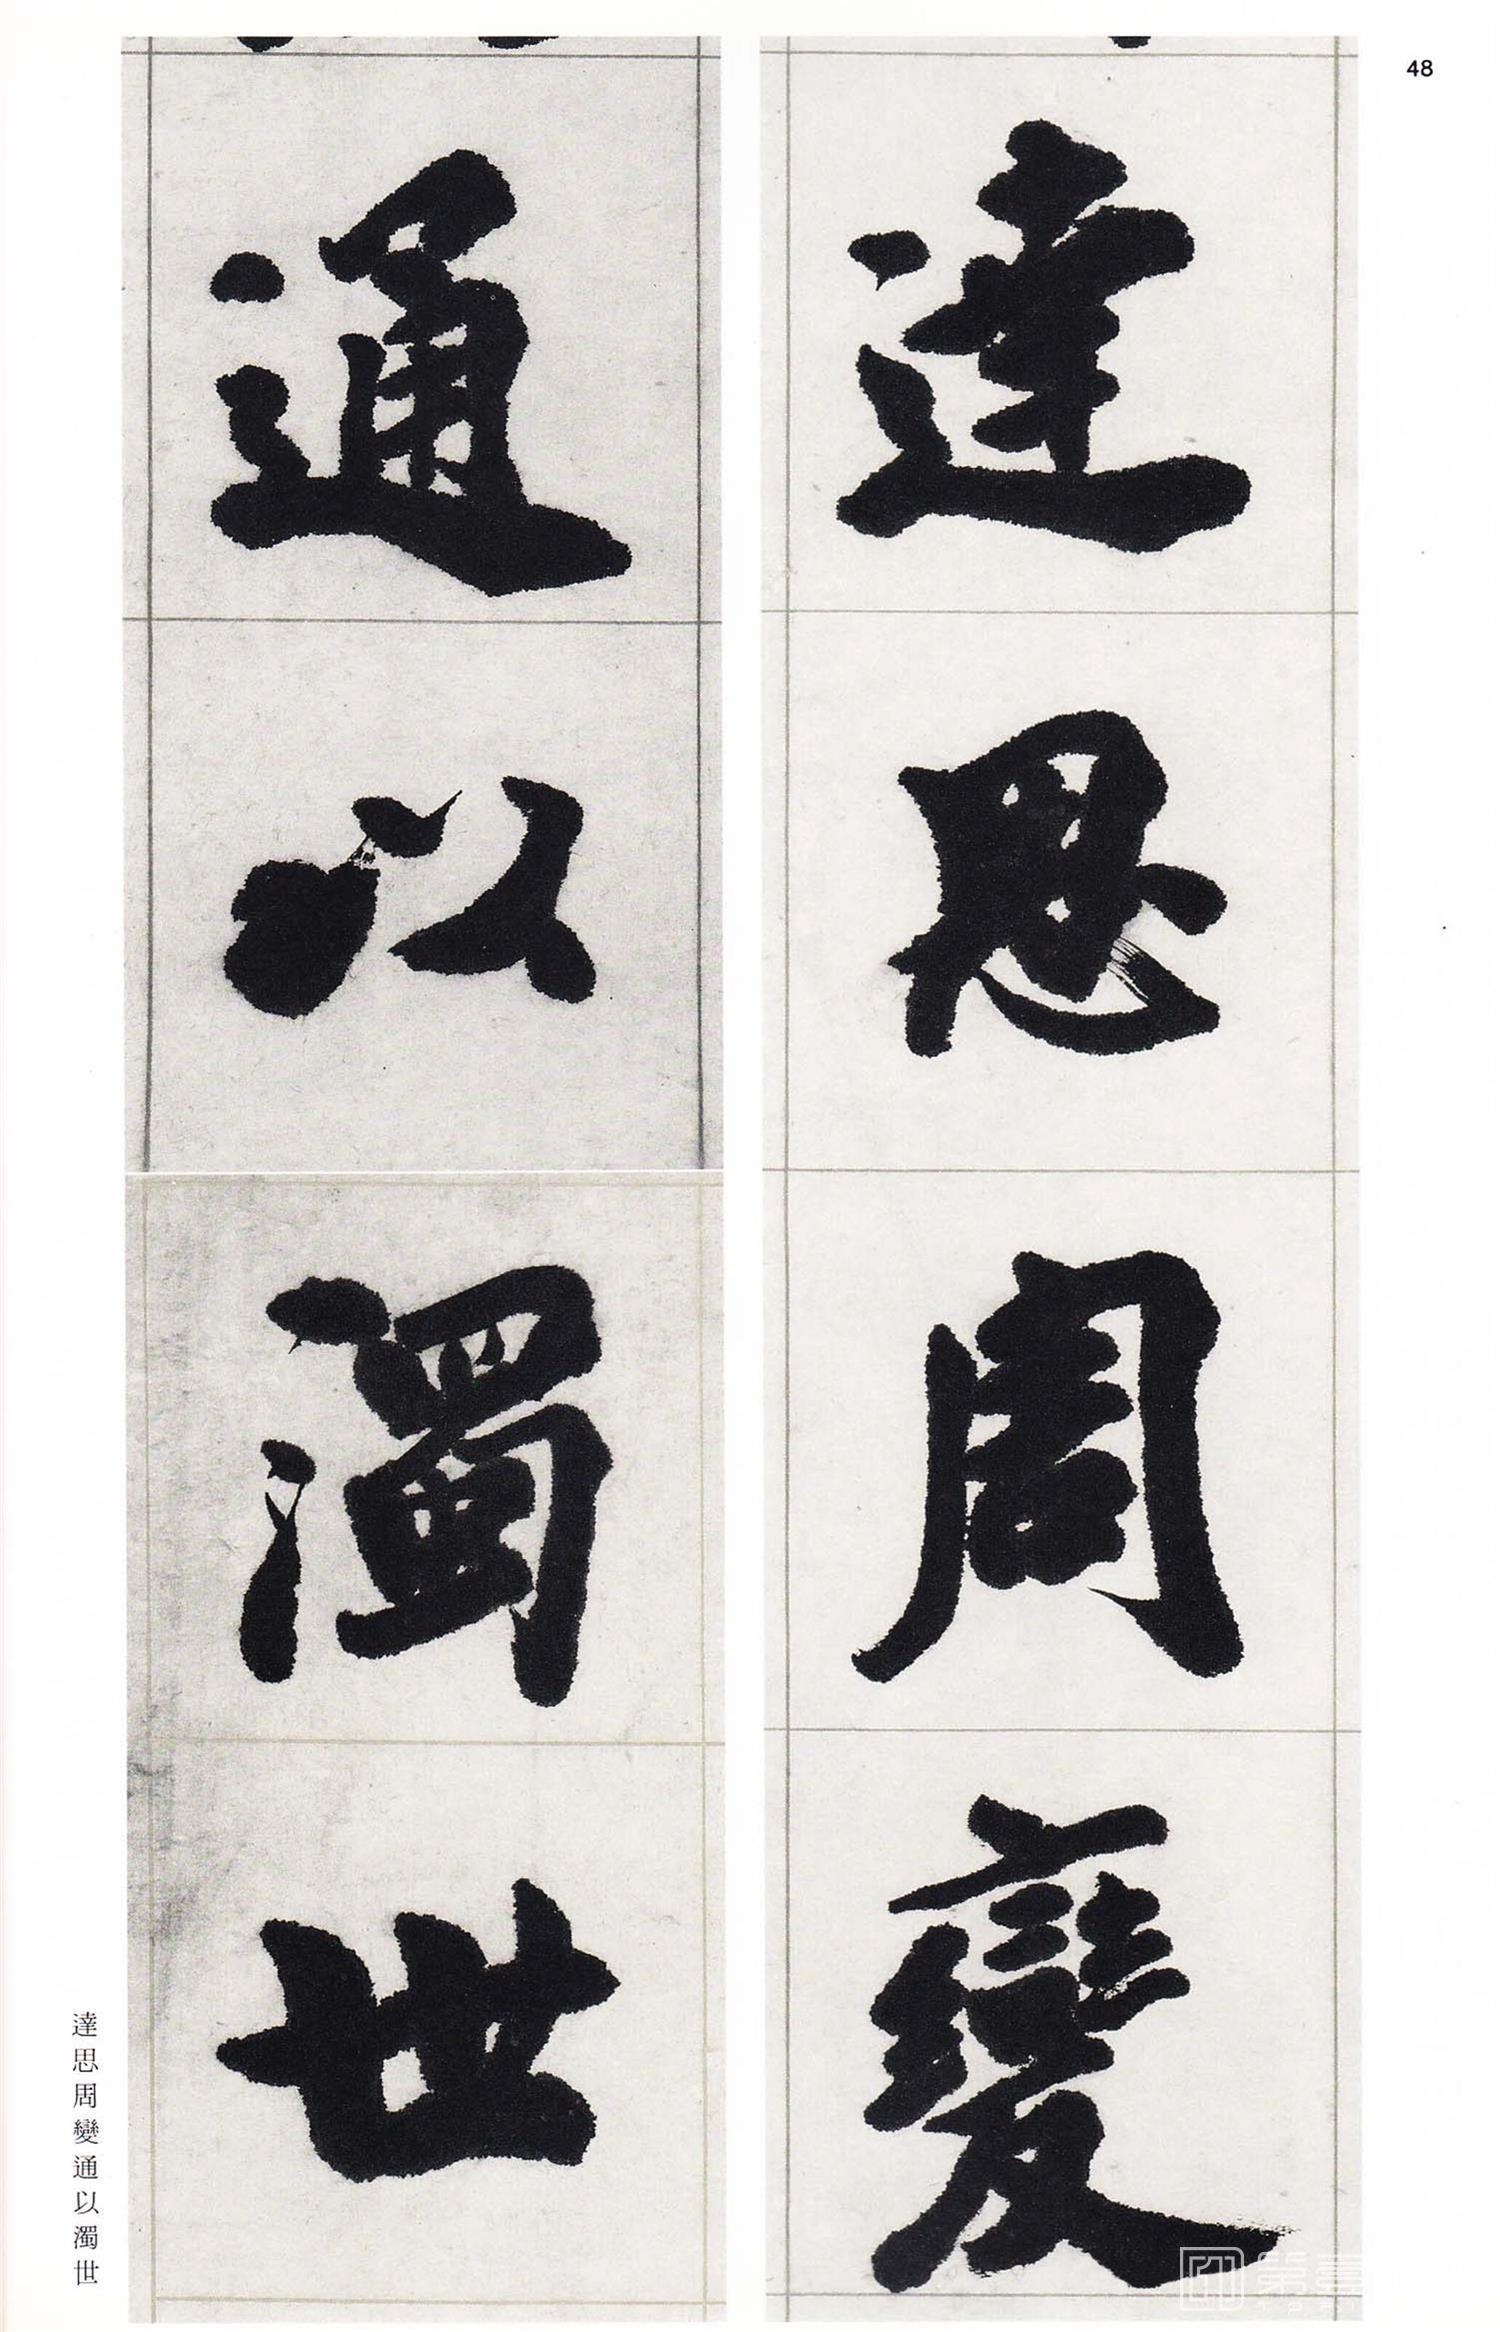 48
達思周變
通以濁世
達思周變通以濁世